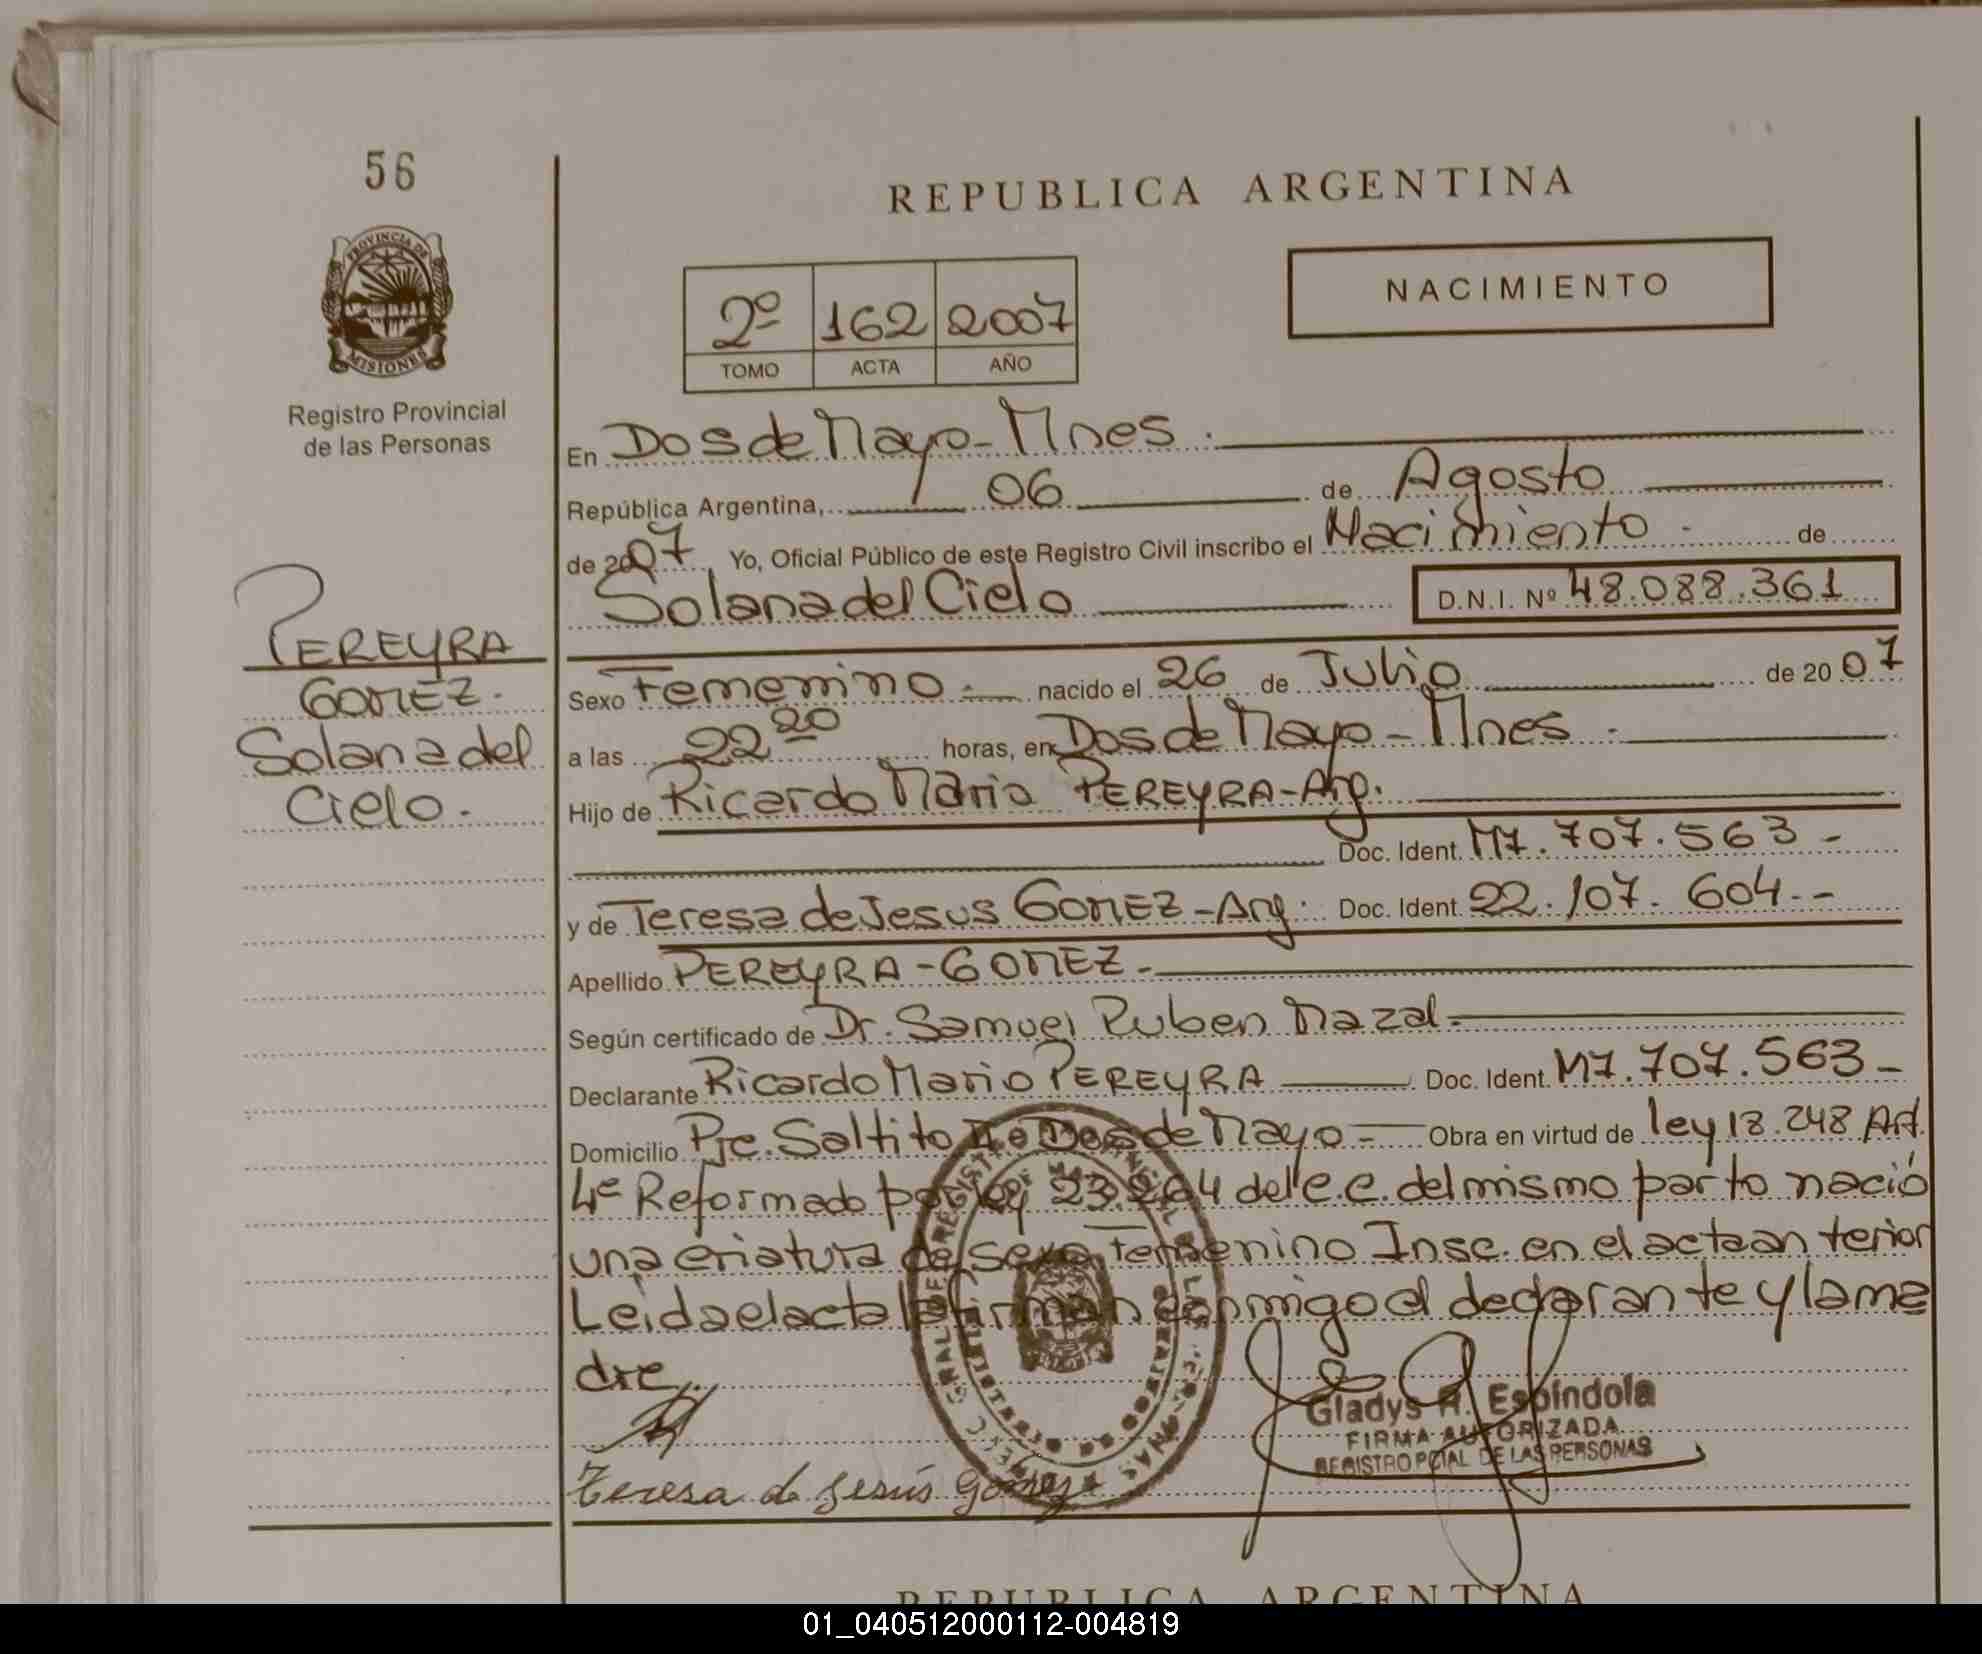 56
REPUBLICA ARGENTINA
PROVINCIA DE
MISIONES
NACIMIENTO
2º 162 2007
TOMO ACTA AÑO
Registro Provincial
de las Personas
En Dos de Mayo - Mnes.
República Argentina, 06 de Agosto
de 2007 Yo, Oficial Público de este Registro Civil inscribo el Nacimiento - de
Solana del Cielo D.N.I. Nº 48.088.361
PEREYRA
GOMEZ.
Solana del
Cielo.
Sexo Femenino.- nacido el 26 de Julio de 2007
a las 22 20 horas, en Dos de Mayo - Mnes.
Hijo de Ricardo Mario PEREYRA - Arg.
Doc. Ident. M7.707.563 -
y de Teresa de Jesus GOMEZ - Arg. Doc. Ident. 22.107.604.-
Apellido PEREYRA - GOMEZ.-
Según certificado de Dr. Samuel Ruben Mazal.-
Declarante Ricardo Mario PEREYRA Doc. Ident. M7.707.563 -
Domicilio Pje. Saltito II Dos de Mayo - Obra en virtud de ley 18.248 Art.
4º Reformado por ley 23.264 del C.C. del mismo parto nació
una criatura de sexo Femenino Insc. en el acta anterior
Leida el acta la firman conmigo el declarante y la ma
dre.
Gladys R. Espindola
FIRMA AUTORIZADA
REGISTRO PCIAL DE LAS PERSONAS
Teresa de Jesús Gomez
REPUBLICA ARGENTINA
01_040512000112-004819